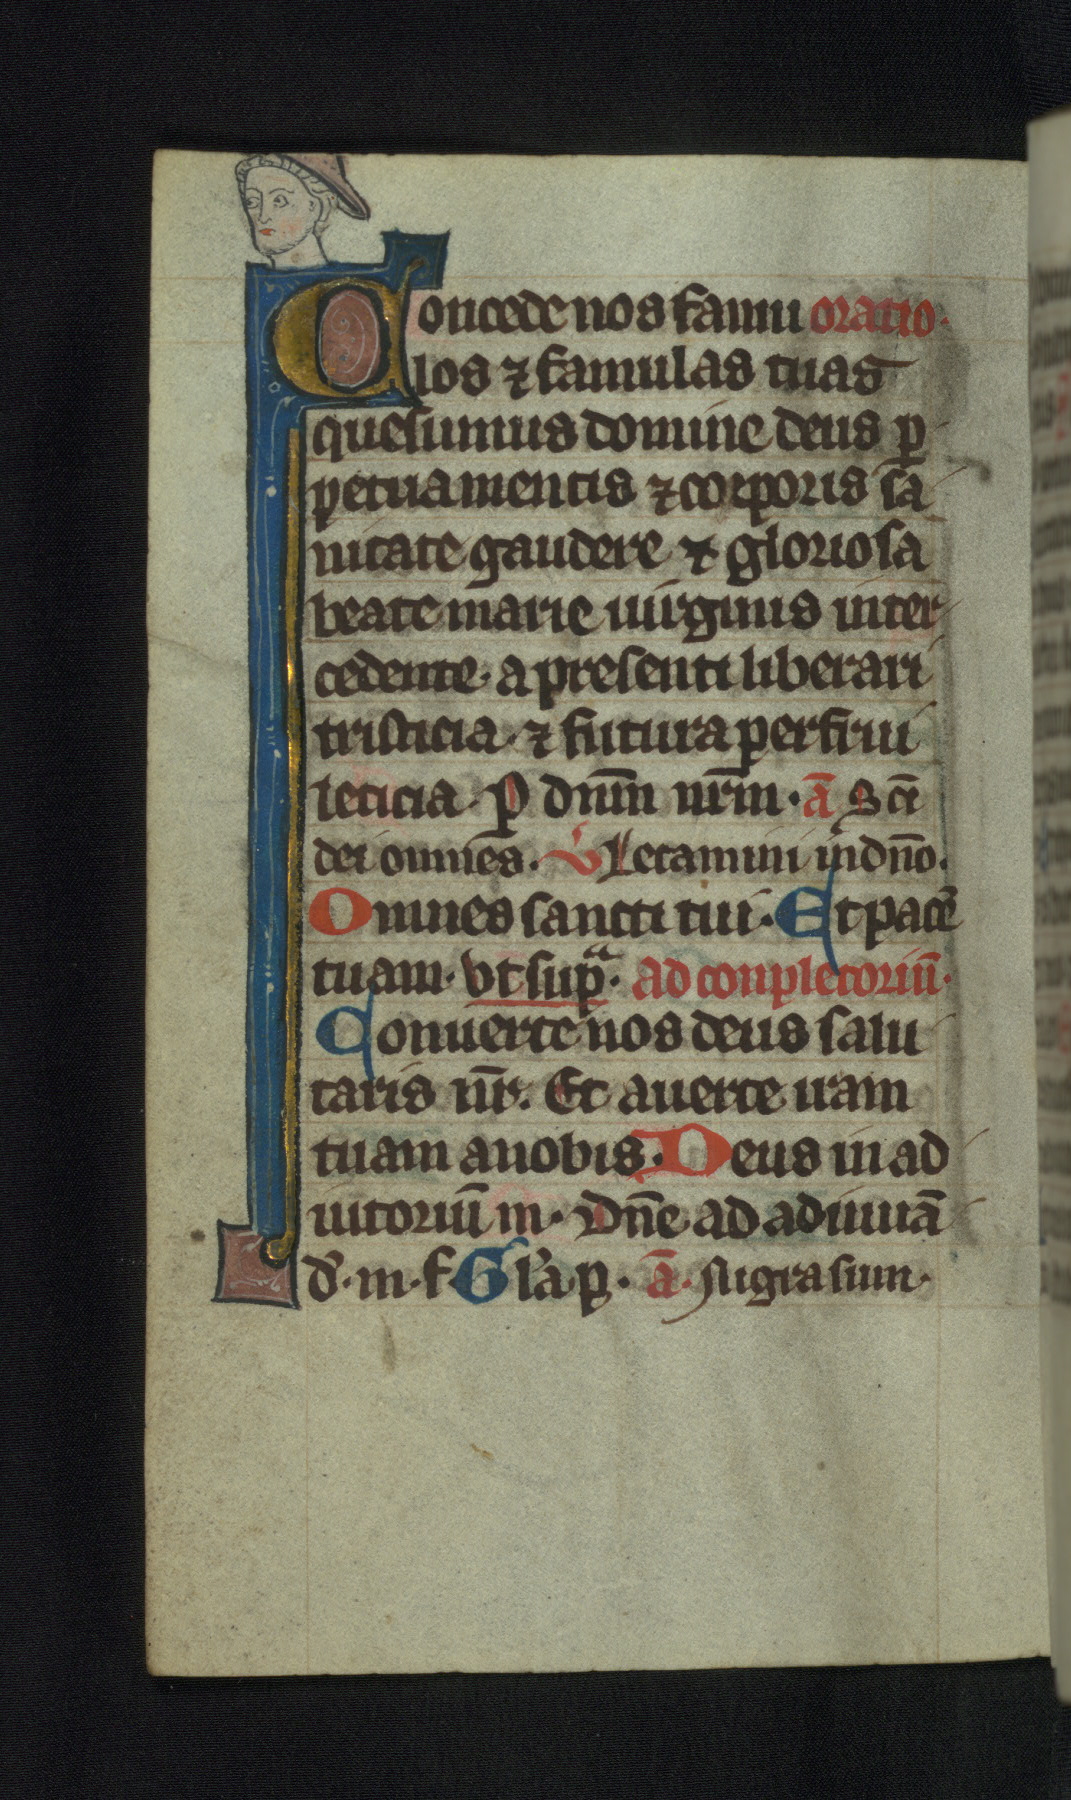 Concede nos famu oratio.
los ⁊ famulas tuas
quesumus domine deus ꝑ
petua mentis ⁊ corporis sa
nitate gaudere ⁊ gloriosa
beate marie uirginis inter
cedente. a presenti liberari
tristicia. ⁊ futura perfrui
leticia. P dn̄m nr̄m. a̅ Sc̅i
dei omnes. V Letamini in dn̄o.
Omnes sancti tui. Et pacē
tuam. vt supͣ. ad conpletoriū.
Conuerte nos deus salu
taris nr̄. Et auerte iram
tuam a nobis. Deus in ad
iutoriū m. Dn̄e ad adiuuā
d'. m. f. Gl'a p. a̅. sugrasum.